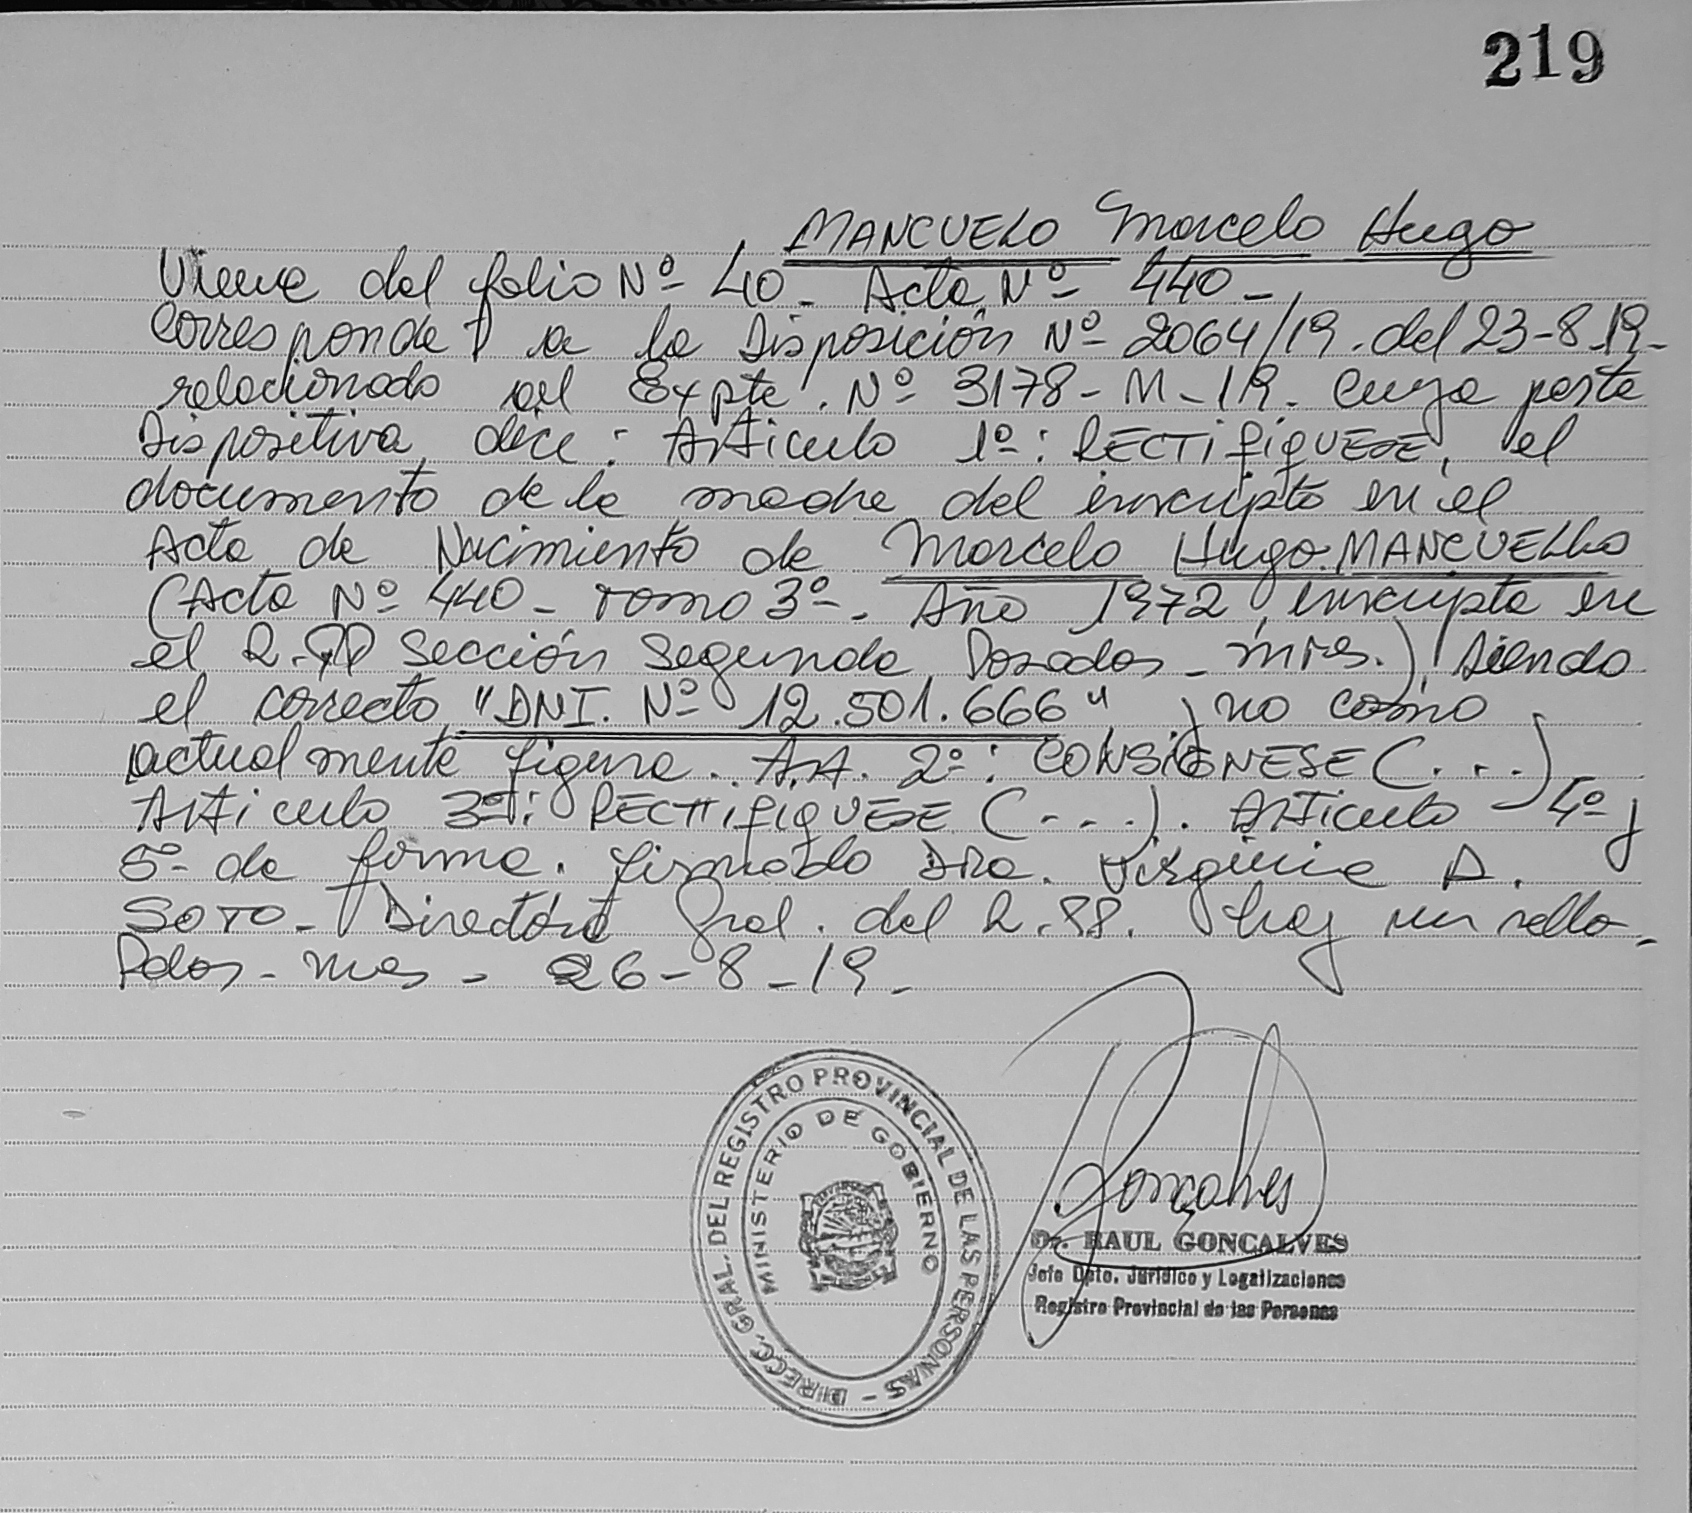 219
MANCUELO Marcelo Hugo
Viene del folio Nº 40 - Acta Nº 440 -
Corresponde a la Disposición Nº 2064/19. del 23-8-19-
relacionado al Expte. Nº 3178-M-19. Cuya parte
Dispositiva dice: Artículo 1º: RECTIFIQUESE, el
documento de la madre del inscripto en el
Acta de Nacimiento de Marcelo Hugo MANCUELLO
(Acta Nº 440 - Tomo 3º - Año 1972, inscripta en
el R.PP Sección Segunda Posadas - Mnes.), siendo
el correcto "DNI. Nº 12.501.666" y no como
actualmente figura. Art. 2º: CONSIGNESE (...)
Artículo 3º: RECTIFIQUESE (...). Artículo 4º y
5º de forma. Firmado Dra. Virginia A.
SOTO - Directora Gral. del R.PP. Hay un sello -
Pdas - Mnes - 26-8-19 -
DIRECC. GRAL. DEL REGISTRO PROVINCIAL DE LAS PERSONAS -
MINISTERIO DE GOBIERNO
Gonçalves
Dr. RAUL GONCALVES
Jefe Dpto. Jurídico y Legalizaciones
Registro Provincial de las Personas